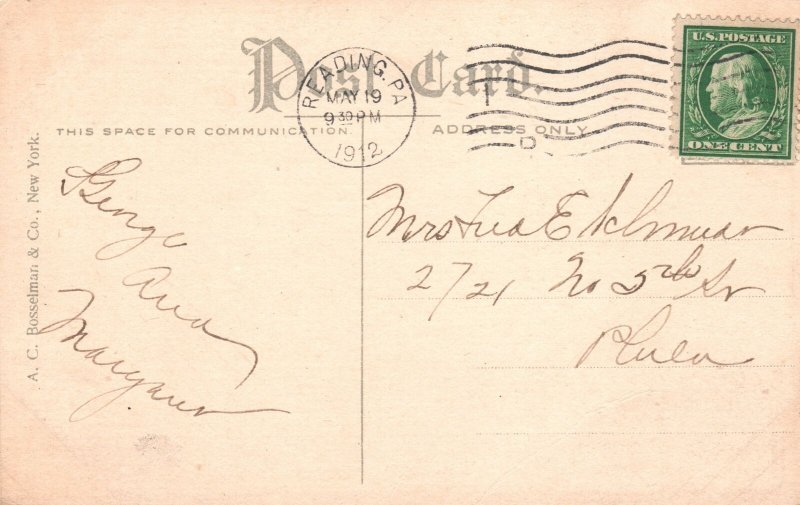 Post Card.
READING, PA.
MAY 19
9 30 PM
1912
U.S. POSTAGE
ONE CENT
THIS SPACE FOR COMMUNICATION.
ADDRESS ONLY
A. C. Bosselman & Co., New York.
George
and
Mrs Fred E
2721 No 5th St
Phila